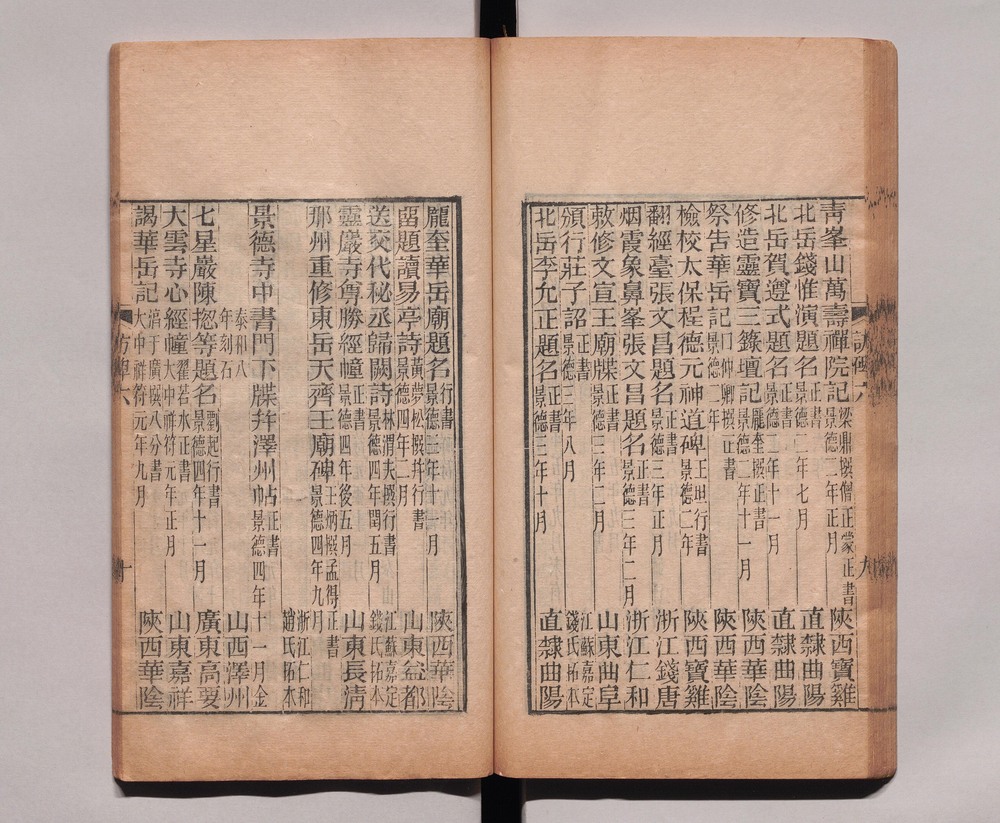 青峯山萬壽禪院記 梁鼎撰僧正蒙正書 景德二年正月 陝西寶雞
北岳錢惟演題名 正書 景德二年七月 直隸曲陽
北岳賀遵式題名 正書 景德二年十一月 直隸曲陽
修造靈寶三籙壇記 龐奎撰正書 景德二年十一月 陝西華陰
祭告華岳記 仲卿撰正書 景德二年 陝西華陰
檢校太保程德元神道碑 王旦行書 景德二年 陝西寶雞
翻經臺張文昌題名 正書 景德三年正月 浙江錢唐
烟霞象鼻峯張文昌題名 正書 景德三年二月 浙江仁和
敕修文宣王廟牒 正書 景德三年二月 山東曲阜
頒行莊子詔 正書 景德三年八月 江蘇嘉定錢氏拓本
北岳李允正題名 正書 景德三年十月 直隸曲陽
龐奎華岳廟題名 行書 景德三年十一月 陝西華陰
留題讀易亭詩 黃夢松撰幷行書 景德四年二月 山東益都
送交代秘丞歸闕詩 林渭夫撰行書 景德四年閏五月 江蘇嘉定錢氏拓本
靈巖寺尊勝經幢 正書 景德四年後五月 山東長清
那州重修東岳天齊王廟碑 王炳撰孟得 正書 景德四年九月 浙江仁和趙氏拓本
景德寺中書門下牒幷澤州帖 正書 景德四年十一月金泰和八年刻石 山西澤州
七星巖陳摠等題名 劉起行書 景德四年十一月 廣東高要
大雲寺心經幢 翟若水正書 大中祥符元年正月 山東嘉祥
謁華岳記 淯于廣撰八分書 大中祥符元年九月 陝西華陰